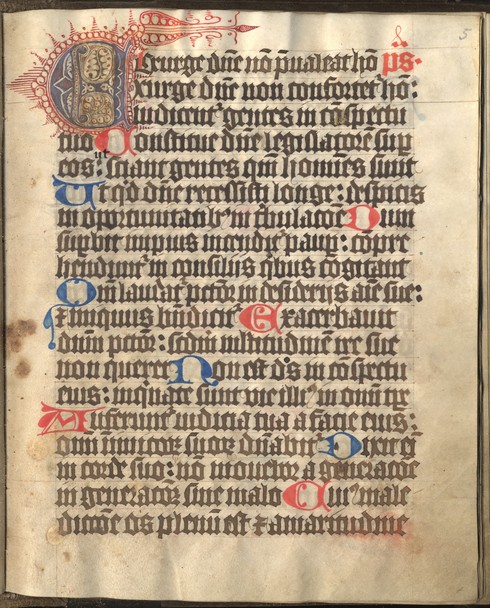 5
Exurge dñe nõ p̃ualeat hõ p̃s.
Exurge dñe non confortet̃ hõ:
iudicent̃ gentes in cõspectu
tuo Constitue dñe legislatorẽ sup̃
eos: ut sciant gentes qm̃ homĩes sunt
Ut qd dñe recessisti longe: despicis
in oportunitatibꝫ in tribulatõe Dum
sup̃bit impius incendit̃ paup̃: cõpre
hendunt̃ in consilijs qbus cogitant
Qm̃ laudat̃ pctõr in desiderijs aĩe sue:
⁊ iniquus bñdicit̃ Exacerbauit
dñm pctõr: scdm̃ multitudinẽ ire sue
non queret Non est ds̃ in cõspectu
eius: inquĩate sunt vie illiꝰ in omni tp̃e
Auferunt̃ iudicia tua a facie eius:
omĩ inimicoꝝ suoꝝ dñabit̃ Dixit em̃
in corde suo: nõ mouebor a generacõe
in generacõẽ sine malo Cuiꝰ male
dictõe os plenũ est ⁊ amaritudine